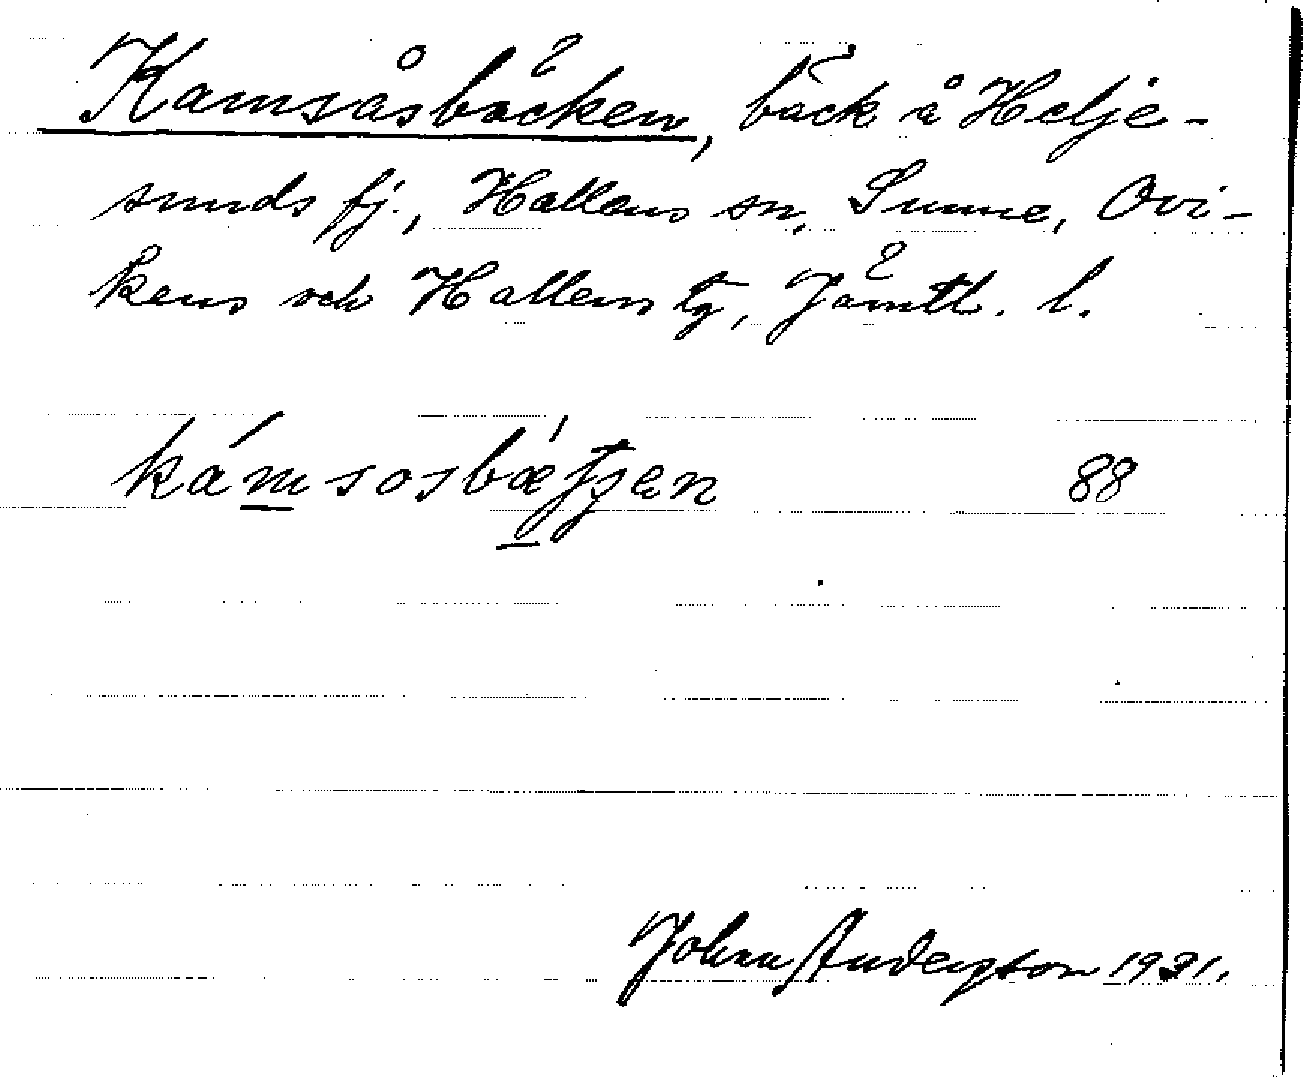 Kamsåsbäcken, bäck å Helje-
sunds fj., Hallens sn, Sunne, Ovi-
kens och Hallens tg, Jämtl. l.
kámsosbæ̀ʈʂen 88
Johan Andersson 1931.